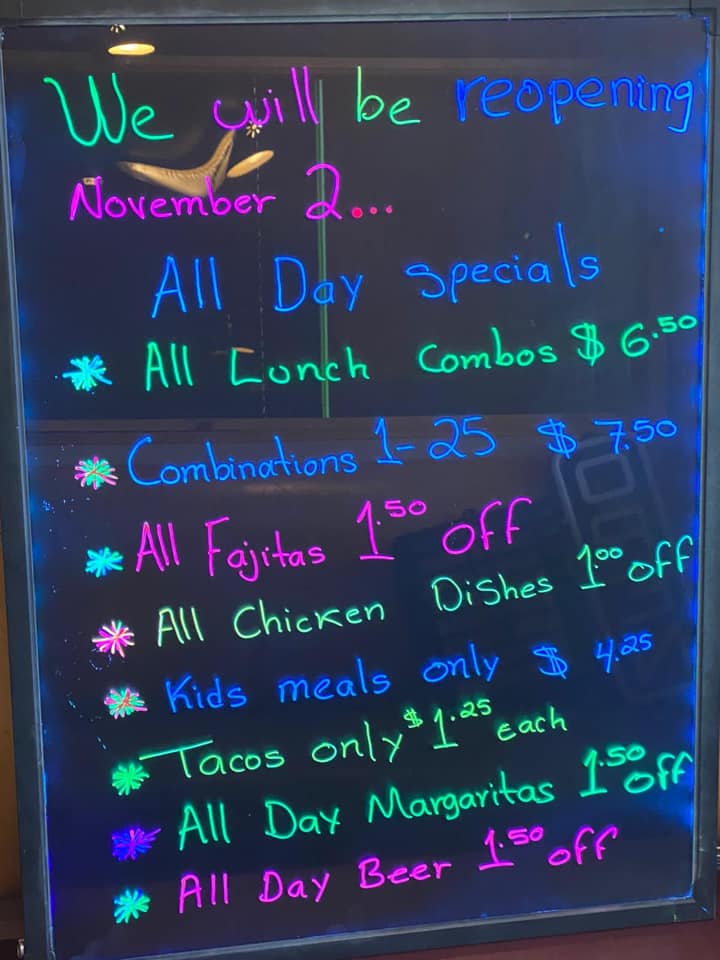 We will be reopening
November 2...
All Day specials
* All Lunch Combos $ 6.50
* Combinations 1-25 $ 7.50
* All Fajitas 1.50 off
* All Chicken Dishes 1.00 off
* Kids meals only $ 4.25
* Tacos only $1.25 each
* All Day Margaritas 1.50 off
* All Day Beer 1.50 off